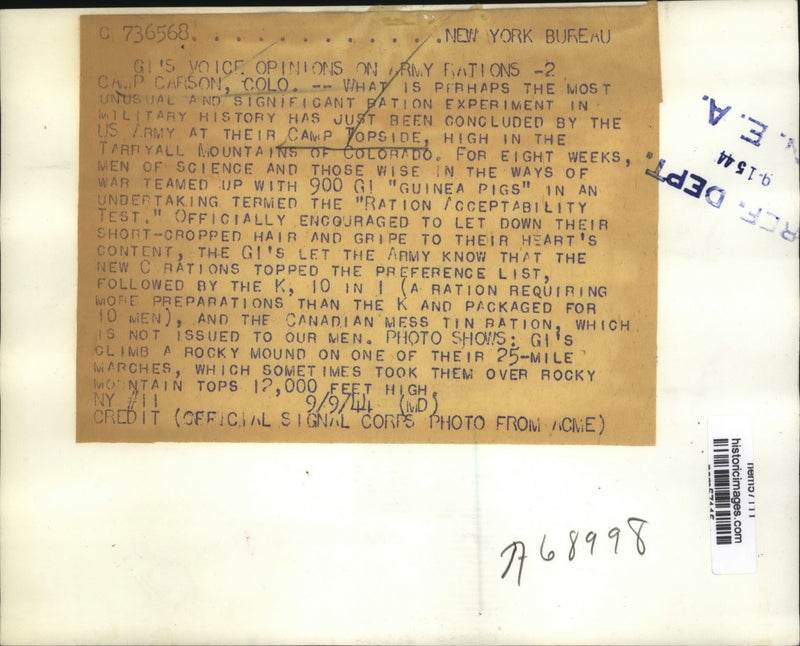 C 736568. . . . . . . . . . . . . .NEW YORK BUREAU
GI'S VOICE OPINIONS ON ARMY RATIONS -2
CAMP CARSON, COLO. -- WHAT IS PERHAPS THE MOST
UNUSUAL AND SIGNIFICANT RATION EXPERIMENT IN
MILITARY HISTORY HAS JUST BEEN CONCLUDED BY THE
US ARMY AT THEIR CAMP TOPSIDE, HIGH IN THE
TARRYALL MOUNTAINS OF COLORADO. FOR EIGHT WEEKS,
MEN OF SCIENCE AND THOSE WISE IN THE WAYS OF
WAR TEAMED UP WITH 900 GI "GUINEA PIGS" IN AN
UNDERTAKING TERMED THE "RATION ACCEPTABILITY
TEST." OFFICIALLY ENCOURAGED TO LET DOWN THEIR
SHORT-CROPPED HAIR AND GRIPE TO THEIR HEART'S
CONTENT, THE GI'S LET THE ARMY KNOW THAT THE
NEW C RATIONS TOPPED THE PREFERENCE LIST,
FOLLOWED BY THE K, 10 IN 1 (A RATION REQUIRING
MORE PREPARATIONS THAN THE K AND PACKAGED FOR
10 MEN), AND THE CANADIAN MESS TIN RATION, WHICH
IS NOT ISSUED TO OUR MEN. PHOTO SHOWS: GI'S
CLIMB A ROCKY MOUND ON ONE OF THEIR 25-MILE
MARCHES, WHICH SOMETIMES TOOK THEM OVER ROCKY
MOUNTAIN TOPS 12,000 FEET HIGH.
NY #11 9/9/44 (MD)
CREDIT (OFFICIAL SIGNAL CORPS PHOTO FROM ACME)
REF. DEPT.
9-15 44
N. E. A.
historicimages.com
A68998